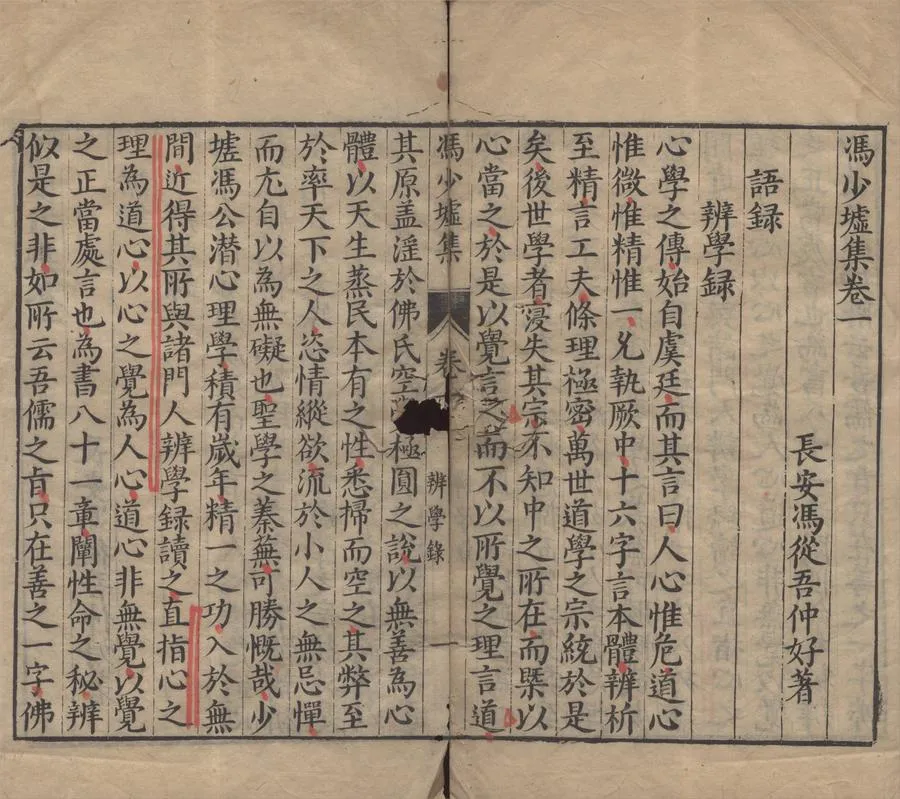 馮少墟集卷一
長安馮從吾仲好著
語録
辨學録
心學之傳始自虞廷而其言曰人心惟危道心
惟微惟精惟一允執厥中十六字言本體辨析
至精言工夫條理極密萬世道學之宗統於是
矣後世學者寖失其宗不知中之所在而槩以
心當之於是以覺言之而不以所覺之理言道
馮少墟集 卷 辨學錄 一
其原盖淫於佛氏空 極圓之說以無善為心
體以天生蒸民本有之性悉掃而空之其弊至
於率天下之人恣情縱欲流於小人之無忌憚
而尤自以為無礙也聖學之蓁蕪可勝慨哉少
墟馮公潛心理學積有嵗年精一之功入於無
間近得其所與諸門人辨學録讀之直指心之
理為道心以心之覺為人心道心非無覺以覺
之正當處言也為書八十一章闡性命之秘辨
似是之非如所云吾儒之㫖只在善之一字佛